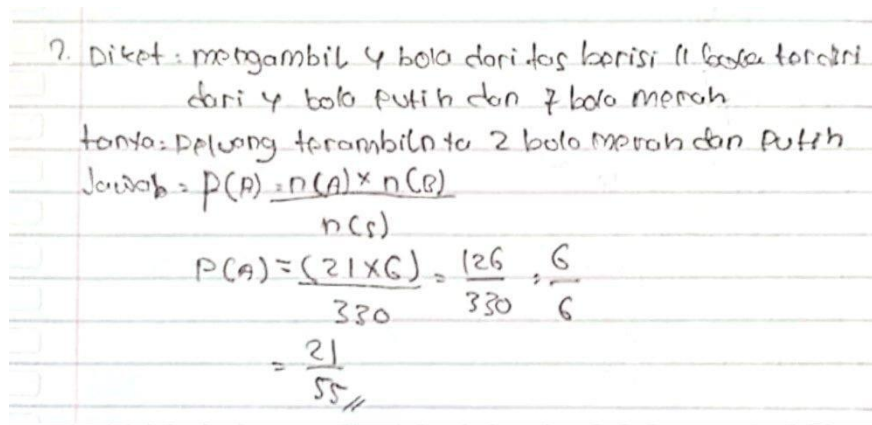 ?. Diket : mengambil 4 bola dari tas berisi 11 bola terdiri
dari 4 bola putih dan 7 bola merah
tanya : peluang terambilnya 2 bola merah dan putih
Jawab = P(A) = n(A) × n(B)
n(s)
P(A) = (21×6) = 126 : 6
330 330 6
= 21
55 //